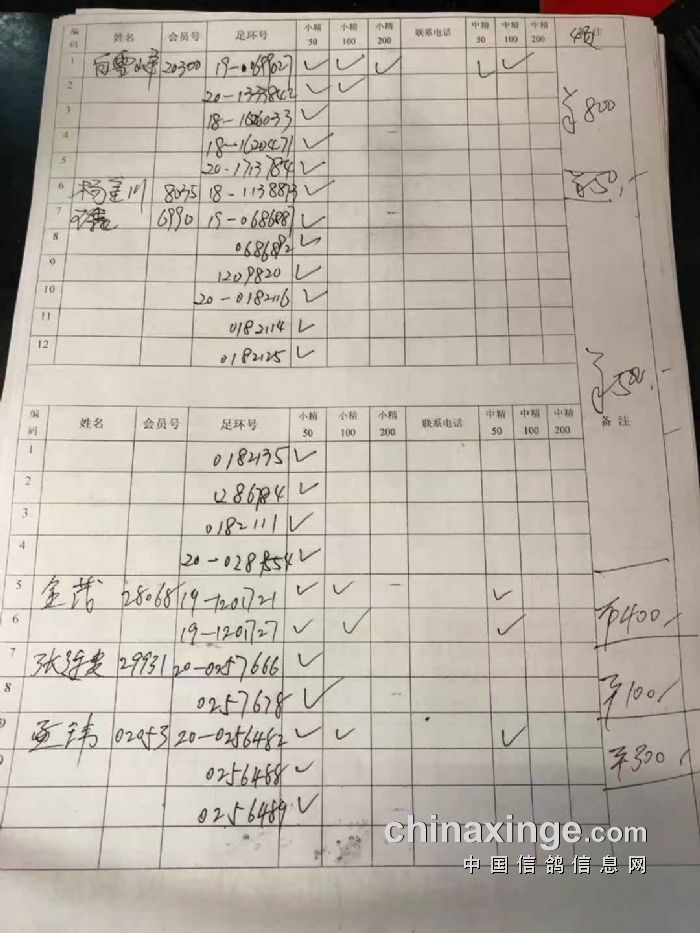 编码 姓名 会员号 足环号 小精50 小精100 小精200 联系电话 中精50 中精100 中精200 注
1 白雪峰 20300 19-0699627 ✓ ✓ ✓ ✓ ✓
2 20-1333842 ✓ ✓ ¥800
3 ✓
4 18-1620471 ✓
5 20-1713784 ✓
6 杨金川 8035 18-1138873 ✓ 50,-
7 6990 19-0686087 ✓ -
8 0686892 ✓
9 1209820 ✓
10 20-0182116 ✓
11 0182114 ✓
12 0182125 ✓ ¥500,-
编码 姓名 会员号 足环号 小精50 小精100 小精200 联系电话 中精50 中精100 中精200 备注
1 0182135 ✓
2 ✓
3 0182111 ✓
4 ✓
5 28068 19-1201721 ✓ ✓ - ✓
6 19-1201727 ✓ ✓ ✓ ¥400
7 29931 20-0257666 ✓
8 0257678 ✓ ¥100
02053 20-0256482 ✓ ✓ ✓
0256488 ✓ ¥300
0256489 ✓
chinaxinge.com
中国信鸽信息网